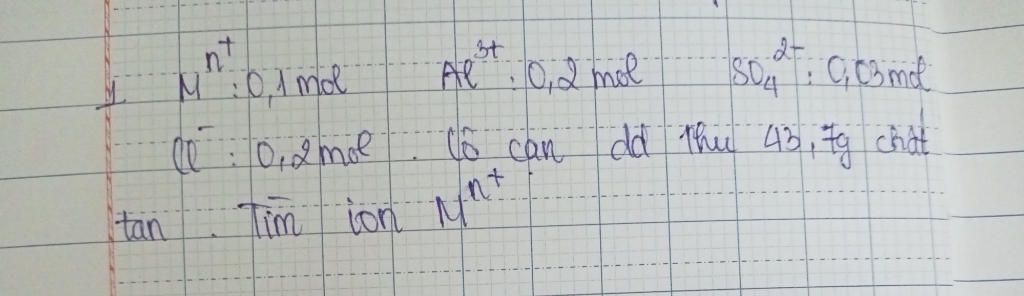 1. M^n+ : 0,1 mol Al^3+ : 0,2 mol SO4^2- : 0,03 mol
Cl^- : 0,2 mol . Cô cạn dd thu 43,7g chất
tan . Tìm ion M^n+